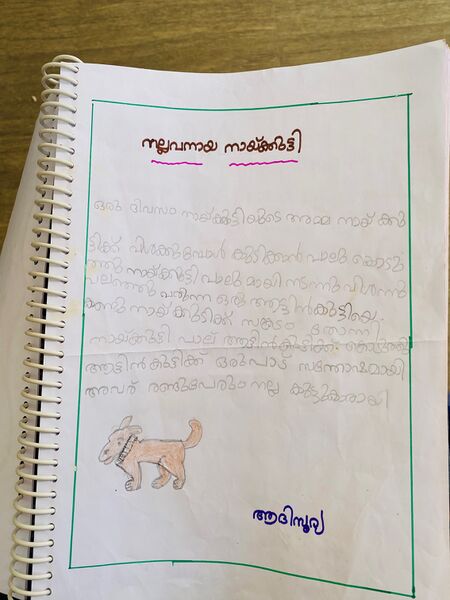 നല്ലവനായ നായ്ക്കുട്ടി
ഒരു ദിവസം നായ്ക്കുട്ടിയുടെ അമ്മ നായ് ക്കു
ട്ടിക്ക് വിശക്കുമ്പോൾ കുടിക്കാൻ പാലു കൊടു
ത്തു നായ്ക്കുട്ടി പാലുമായി നടന്നു വിശന്നു
വലഞ്ഞു വരുന്ന ഒരു ആട്ടിൻകുട്ടിയെ
കണ്ടു നായ്ക്കുട്ടിക്ക് സങ്കടം തോന്നി
നായ്ക്കുട്ടി പാല് ആട്ടിൻകുട്ടിക്കു കൊടുത്തു
ആട്ടിൻകുട്ടിക്ക് ഒരുപാട് സന്തോഷമായി
അവര് രണ്ടുപേരും നല്ല കൂട്ടുകാരായി
ആദിസൂര്യ